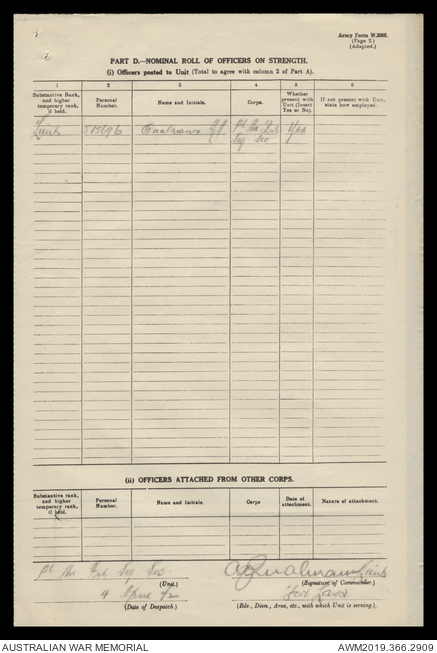 Army Form W.3008.
(Page 2.)
(Adapted.)
PART D.—NOMINAL ROLL OF OFFICERS ON STRENGTH.
(i) Officers posted to Unit (Total to agree with column 2 of Part A).
1 2 3 4 5 6
Substantive Rank, and higher temporary rank, if held.
Personal Number.
Name and Initials.
Corps.
Whether present with Unit (Insert Yes or No).
If not present with Unit, state how employed.
Lieut Yes
Sig Sec
(ii) OFFICERS ATTACHED FROM OTHER CORPS.
Substantive rank, and higher temporary rank, if held.
Personal Number.
Name and Initials.
Corps
Date of attachment.
Nature of attachment.
Sig Sec Lieut
(Unit.) (Signature of Commander.)
4 April
(Date of Despatch.) (Bde., Divn., Area, etc., with which Unit is serving.)
AUSTRALIAN WAR MEMORIAL AWM2019.366.2909